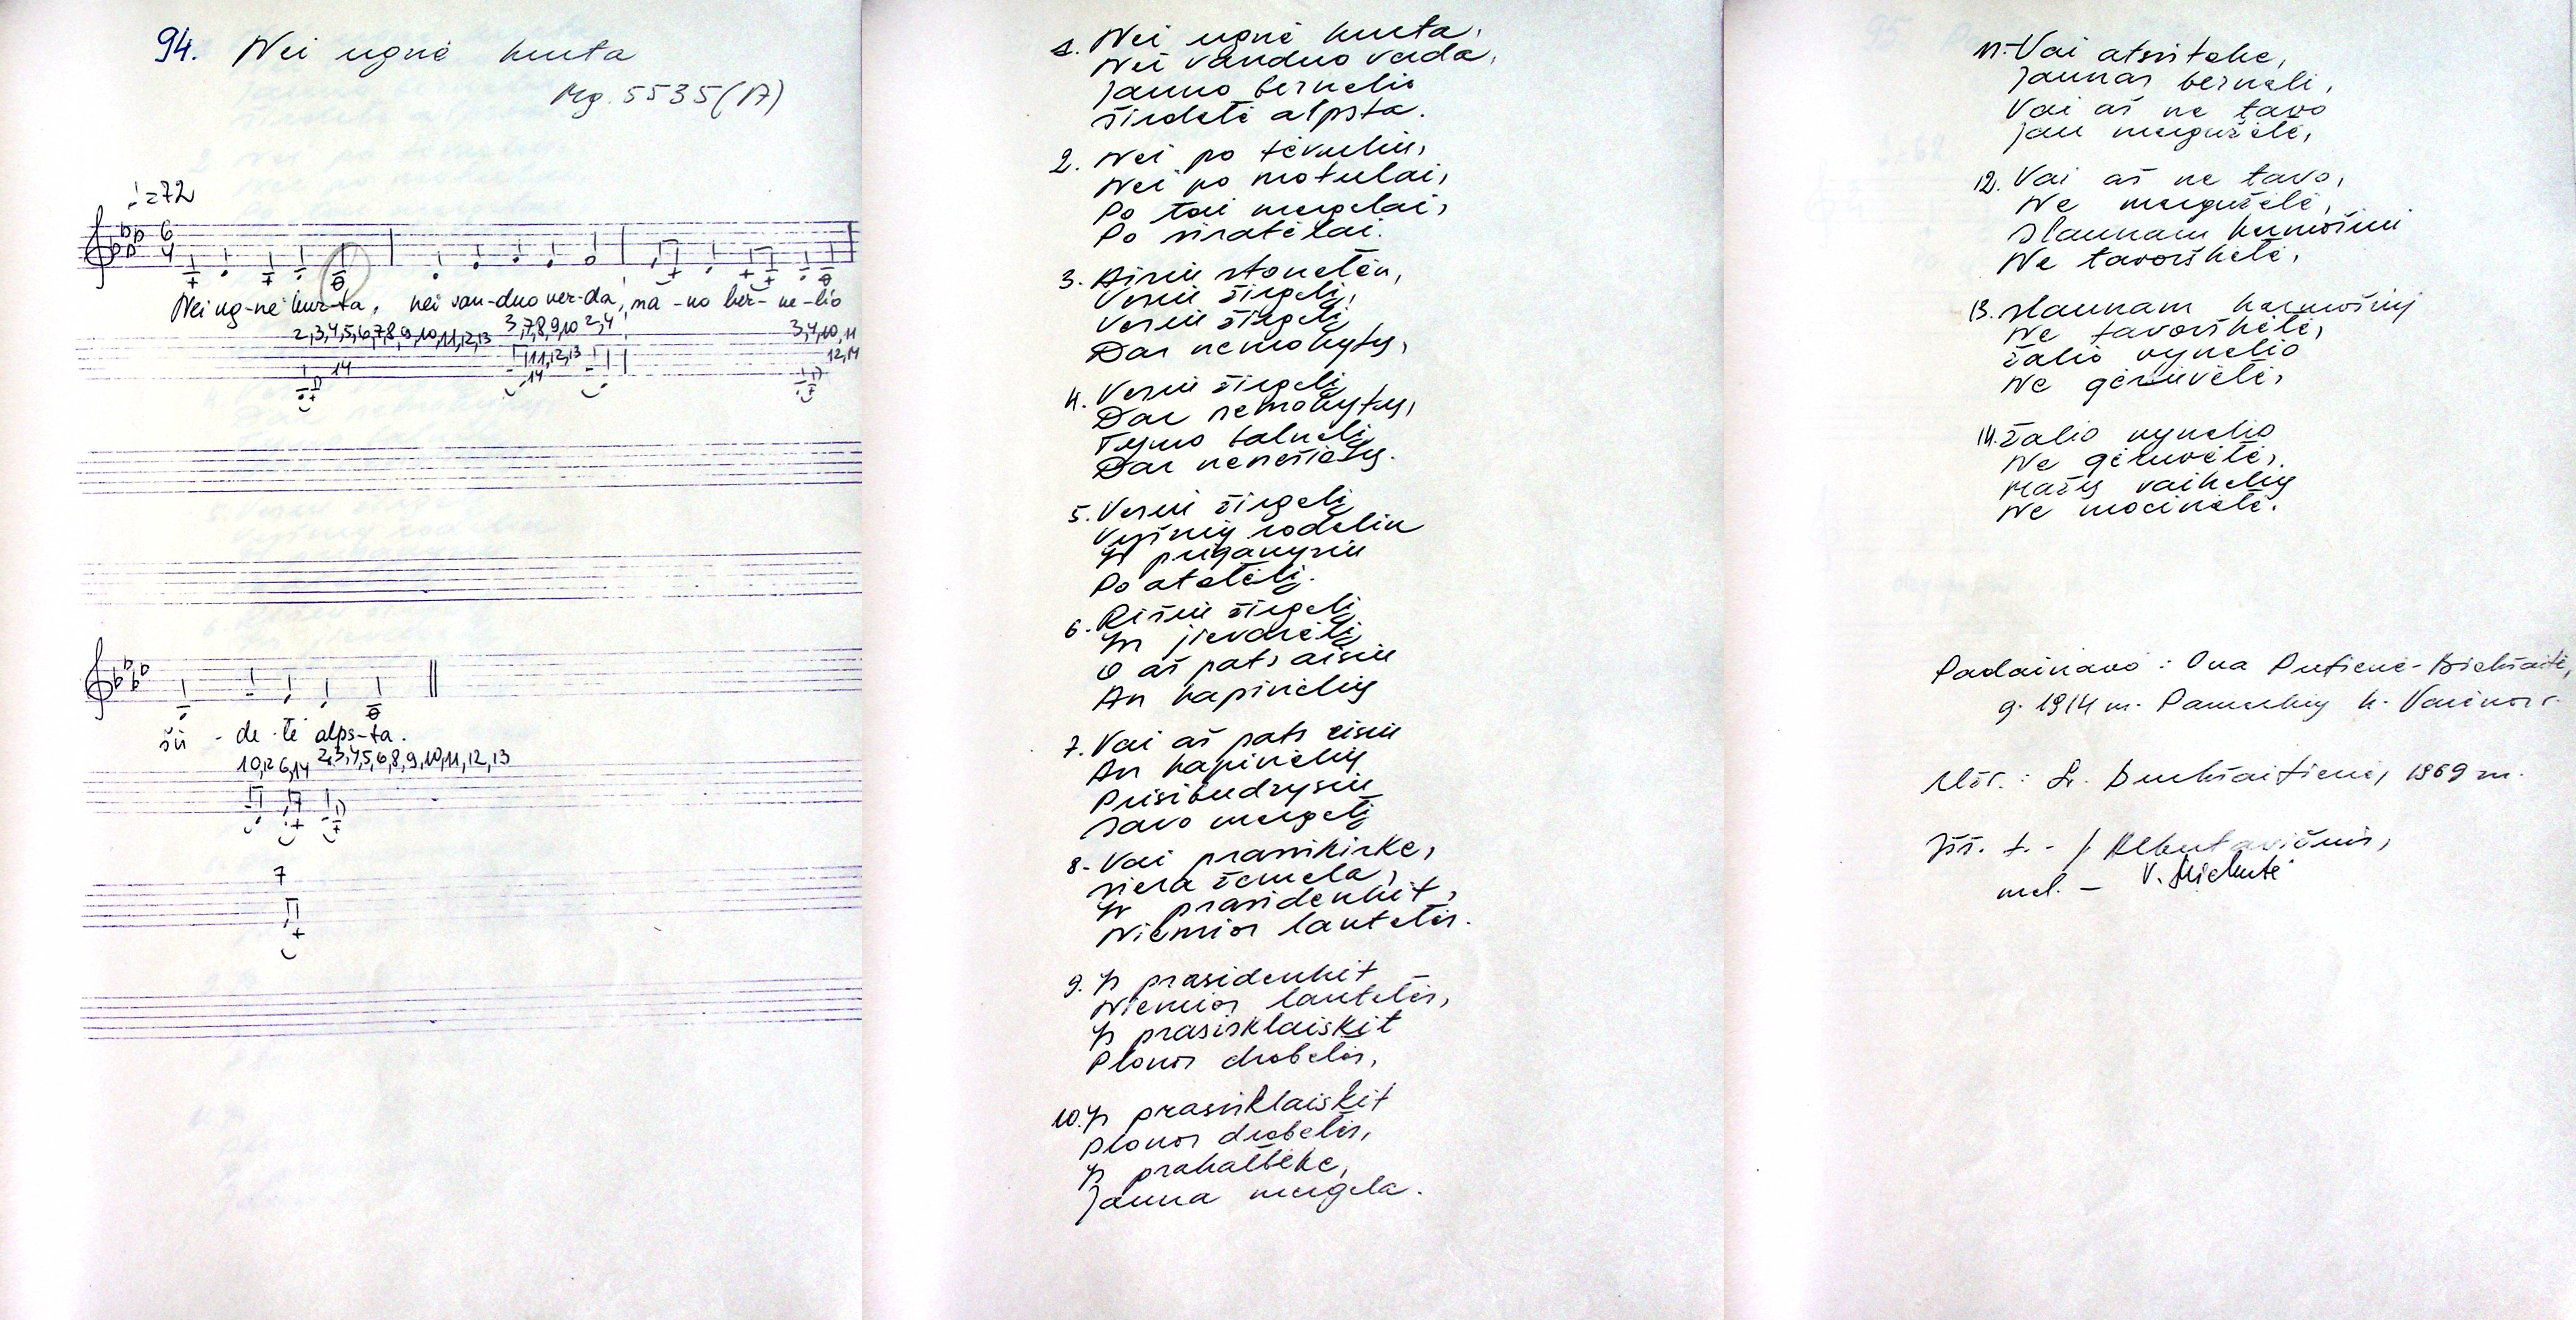 94. Nei ugnė kurta
Mg. 5535(17)
♩=72
Nei ug-nė kur-ta, nei van-duo ver-da, ma-no ber-ne-lio
2,3,4,5,6,7,8,9,10,11,12,13 3,7,8,9,10 2,4 3,4,10,11
14 11,12,13 12,14
14
šir-de-lė alps-ta.
10,12 6,14 2,3,4,5,6,8,9,10,11,12,13
7
1. Nei ugnė kurta,
Nei vanduo verda,
Jauno bernelio
Širdelė alpsta.
2. Nei po tėvuliu,
Nei po motulai,
Po tai mergelai,
Po siratėlai.
3. Aisiu stonelėn,
Vesiu žirgelį,
Vesiu žirgelį
Dar nemokytų,
4. Vesiu žirgelį
Dar nemokytų,
Tymo balnelį
Dar nenešiotų.
5. Vesiu žirgelį
Vyšnių sodeliu
Ir priganysiu
Po atolėlį.
6. Rišiu žirgelį
In jievarėlį
O aš pats aisiu
An kapinėlių
7. Vai aš pats eisiu
An kapinėlių
Prisibudzysiu
Savo mergelį
8. Vai prasiskirke,
siera žemela,
Ir prasidenkit,
Niemios lantelės.
9. Ir prasidenkit
Niemios lantelės,
Ir prasisklaiskit
Plonos drobelės,
10. Ir prasisklaiskit
Plonos drobelės,
Ir prakalbėke,
Jauna mergela.
11. Vai atsitoke,
Jaunas berneli,
Vai aš ne tavo
Jau mergužėlė,
12. Vai aš ne tavo,
Ne mergužėlė,
Slaunam karmošiui
Ne tavorškėlė,
13. Slaunam karmošiuj
Ne tavorškėlė,
Žalio vynelio
Ne gėruvėlė,
14. Žalio vynelio
Ne gėruvėlė,
Mažų vaikelių
Ne mocinėlė.
Padainavo: Ona
g. 1914 m. k. Varėnos r.
Užr.: 1969 m.
Išš. t. - J.
mel. -